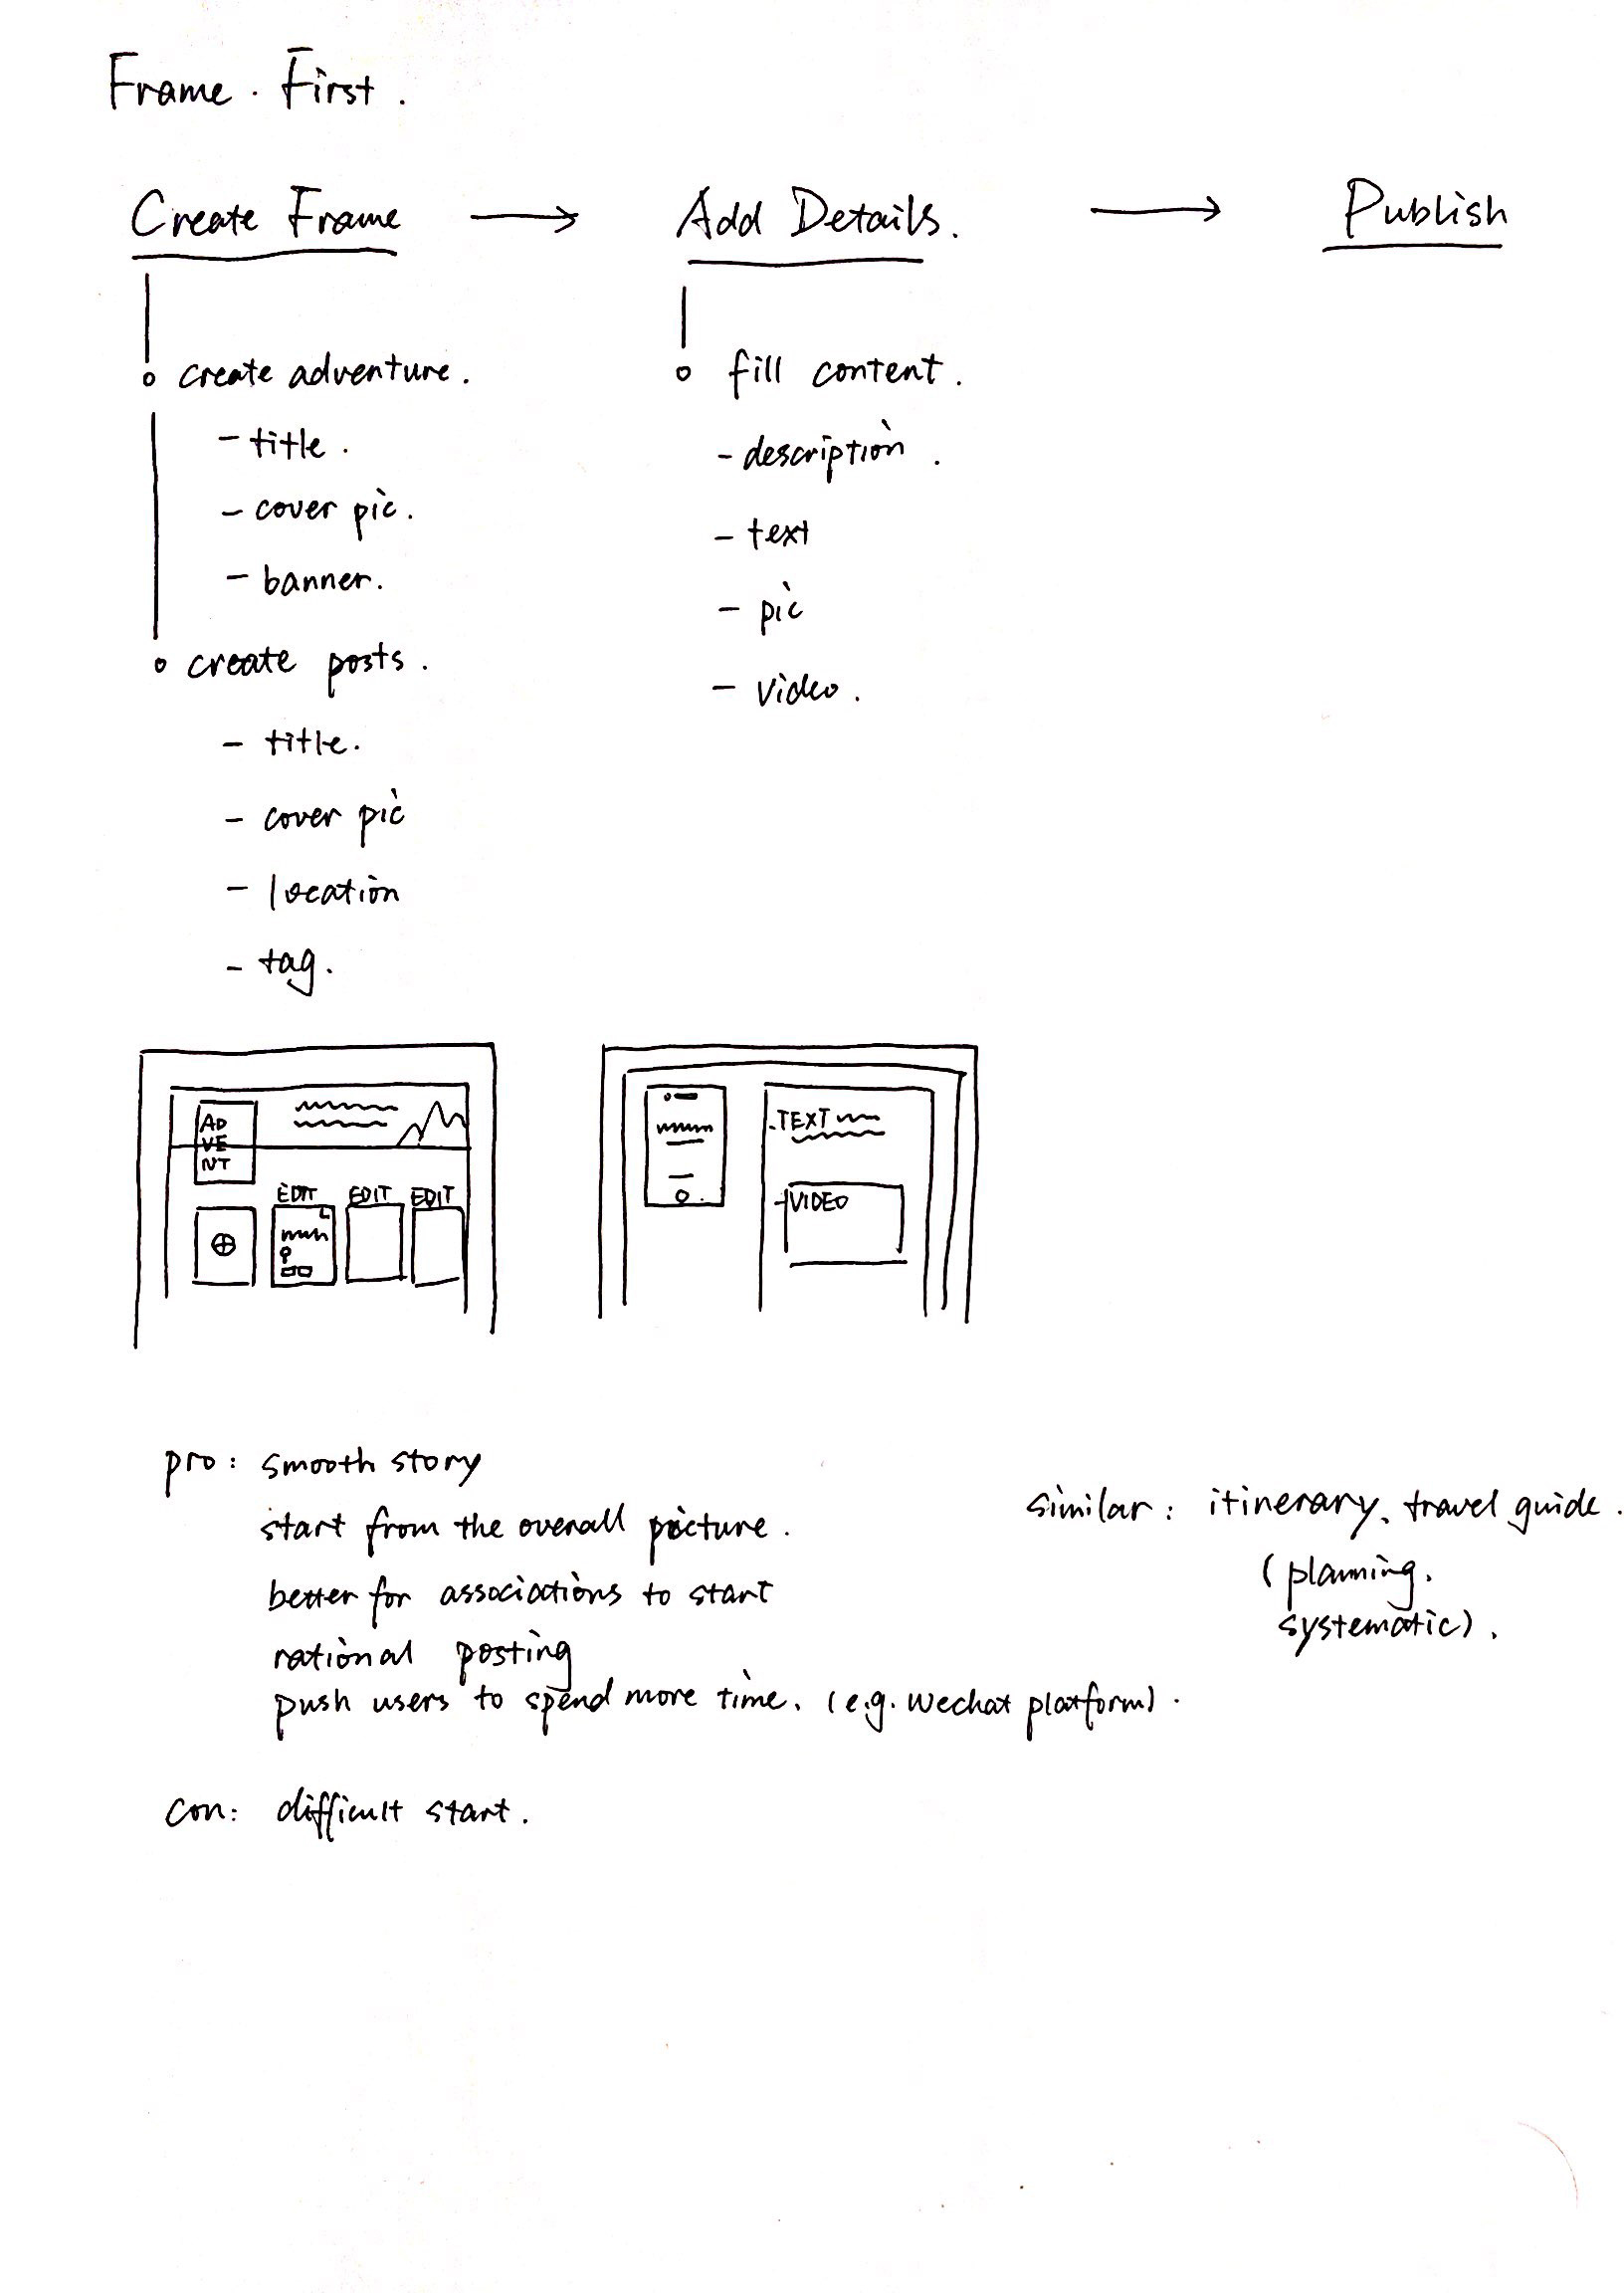 Frame . First .
Create Frame → Add Details. → Publish
create adventure.
- title .
- cover pic.
- banner.
create posts .
- title.
- cover pic
- location
- tag.
fill content .
- description .
- text
- pic
- video .
AD
VE
NT
EDIT EDIT EDIT
TEXT
VIDEO
pro : smooth story
start from the overall picture .
better for associations to start
rational posting
push users to spend more time. (e.g. wechat platform) .
con: difficult start .
similar : itinerary, travel guide .
(planning,
systematic) .